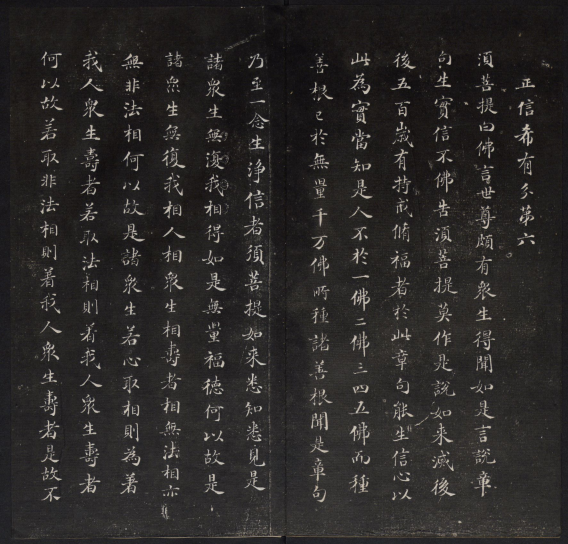 正信希有分第六
須菩提白佛言世尊頗有衆生得聞如是言說章
句生實信不佛告須菩提莫作是說如来滅後
後五百歲有持戒脩福者於此章句能生信心以
此為實當知是人不於一佛二佛三四五佛而種
善根已於無量千万佛所種諸善根聞是章句
乃至一念生淨信者須菩提如来悉知悉見是
諸衆生無復我相得如是無量福德何以故是
諸衆生無復我相人相衆生相壽者相無法相亦
無非法相何以故是諸衆生若心取相則為著
我人衆生壽者若取法相則着我人衆生壽者
何以故若取非法相則着我人衆生壽者是故不